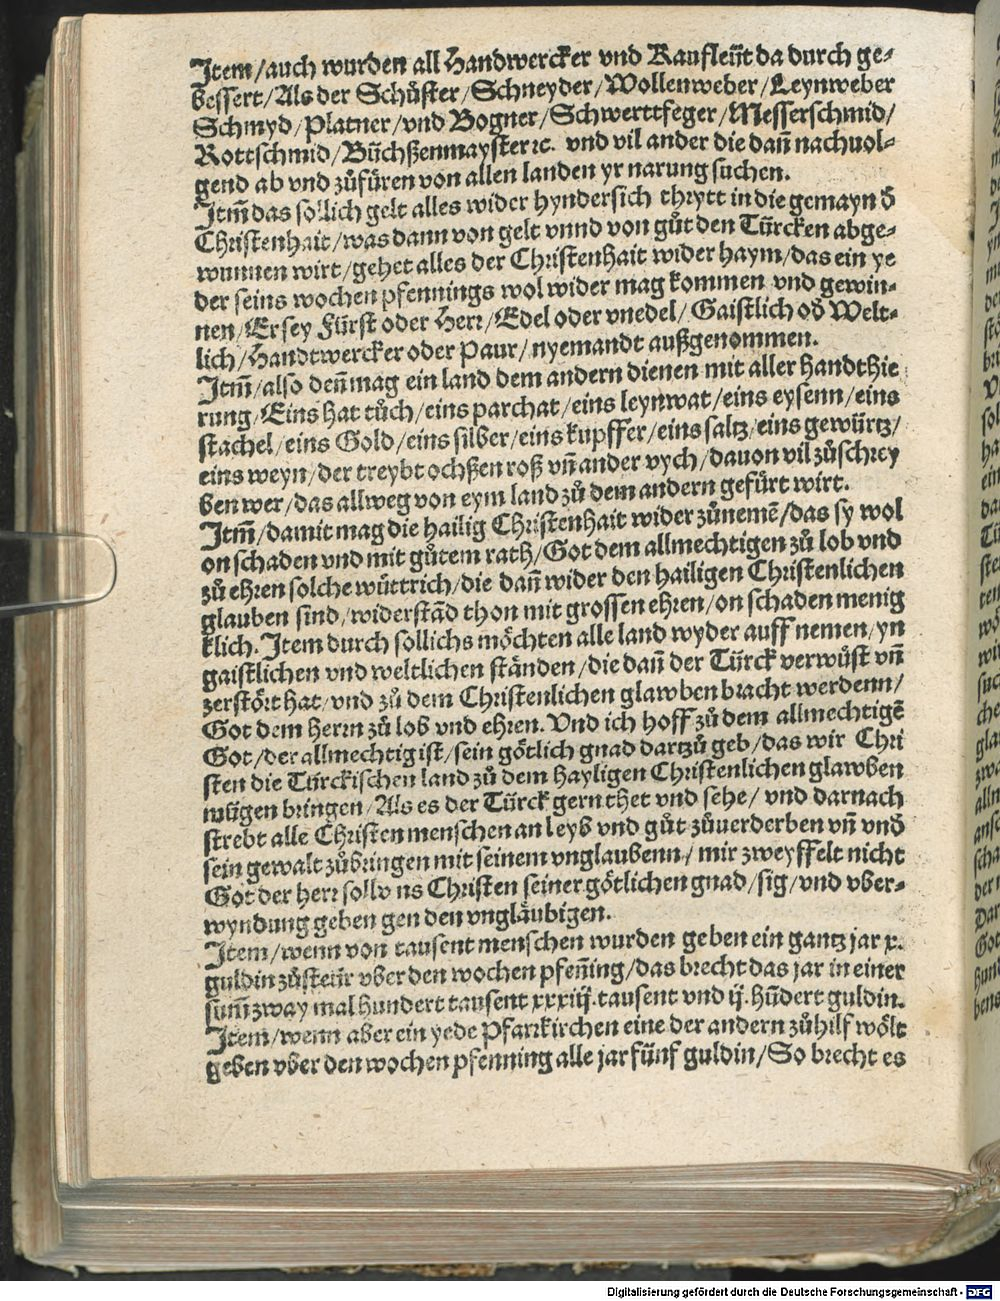 Item/auch wurden all Handwercker vnd Kaufleüt da durch ge⸗
bessert/Als der Schůster/Schneyder/Wollenweber/Leynweber
Schmyd/Platner/vnd Bogner/Schwerttfeger/Messerschmid/
Rottschmid/Büchßenmayster ꝛc. vnd vil ander die dañ nachuol⸗
gend ab vnd zůfüren von allen landen yr narung suchen.
Itm̃ das sollich gelt alles wider hyndersich thrytt in die gemayn d̄
Christenhait/was dann von gelt vnnd von gůt den Türcken abge⸗
wunnen wirt/gehet alles der Christenhait wider haym/das ein ye
der seins wochen pfennings wol wider mag kommen vnd gewin⸗
nen/Er sey Fürst oder Herr/Edel oder vnedel/Gaistlich od̄ Welt⸗
lich/Handtwercker oder Paur/nyemandt außgenommen.
Itm̃/also deñ mag ein land dem andern dienen mit aller handthie
rung/Eins hat tůch/eins parchat/eins leynwat/eins eysenn/eins
stachel/eins Gold/eins silber/eins kupffer/eins saltz/eins gewürtz/
eins weyn/der treybt ochßen roß vñ ander vych/dauon vil zůschrey
ben wer/das allweg von eym land zů dem andern gefürt wirt.
Itm̃/damit mag die hailig Christenhait wider zůnemē/das sy wol
on schaden vnd mit gůtem rath/Got dem allmechtigen zů lob vnd
zů ehren solche wüttrich/die dañ wider den hailigen Christenlichen
glauben sind/widerstād thon mit grossen ehren/on schaden menig
klich. Item durch sollichs möchten alle land wyder auff nemen/yn
gaistlichen vnd weltlichen ständen/die dañ der Türck verwůst vñ
zerstört hat/vnd zů dem Christenlichen glawben bracht werdenn/
Got dem Herrn zů lob vnd ehren. Vnd ich hoff zů dem allmechtigē
Got/der allmechtig ist/sein götlich gnad dartzů geb/das wir Chri
sten die Türckischen land zů dem hayligen Christenlichen glawben
mügen bringen/Als es der Türck gern thet vnd sehe/vnd darnach
strebt alle Christen menschen an leyb vnd gůt zůuerderben vñ vnd̄
sein gewalt zůbringen mit seinem vnglaubenn/mir zweyffelt nicht
Got der herr sollv ns Christen seiner götlichen gnad/sig/vnd vber⸗
wyndung geben gen den vngläubigen.
Item/wenn von tausent menschen wurden geben ein gantz jar x.
guldin zůsteür vber den wochen pfeñing/das brecht das jar in einer
sum̃ zway mal hundert tausent xxxiij. tausent vnd ij. hūdert guldin.
Item/wenn aber ein yede Pfarrkirchen eine der andern zůhilf wölt
geben vber den wochen pfenning alle jar fünf guldin/So brecht es
Digitalisierung gefördert durch die Deutsche Forschungsgemeinschaft - DFG